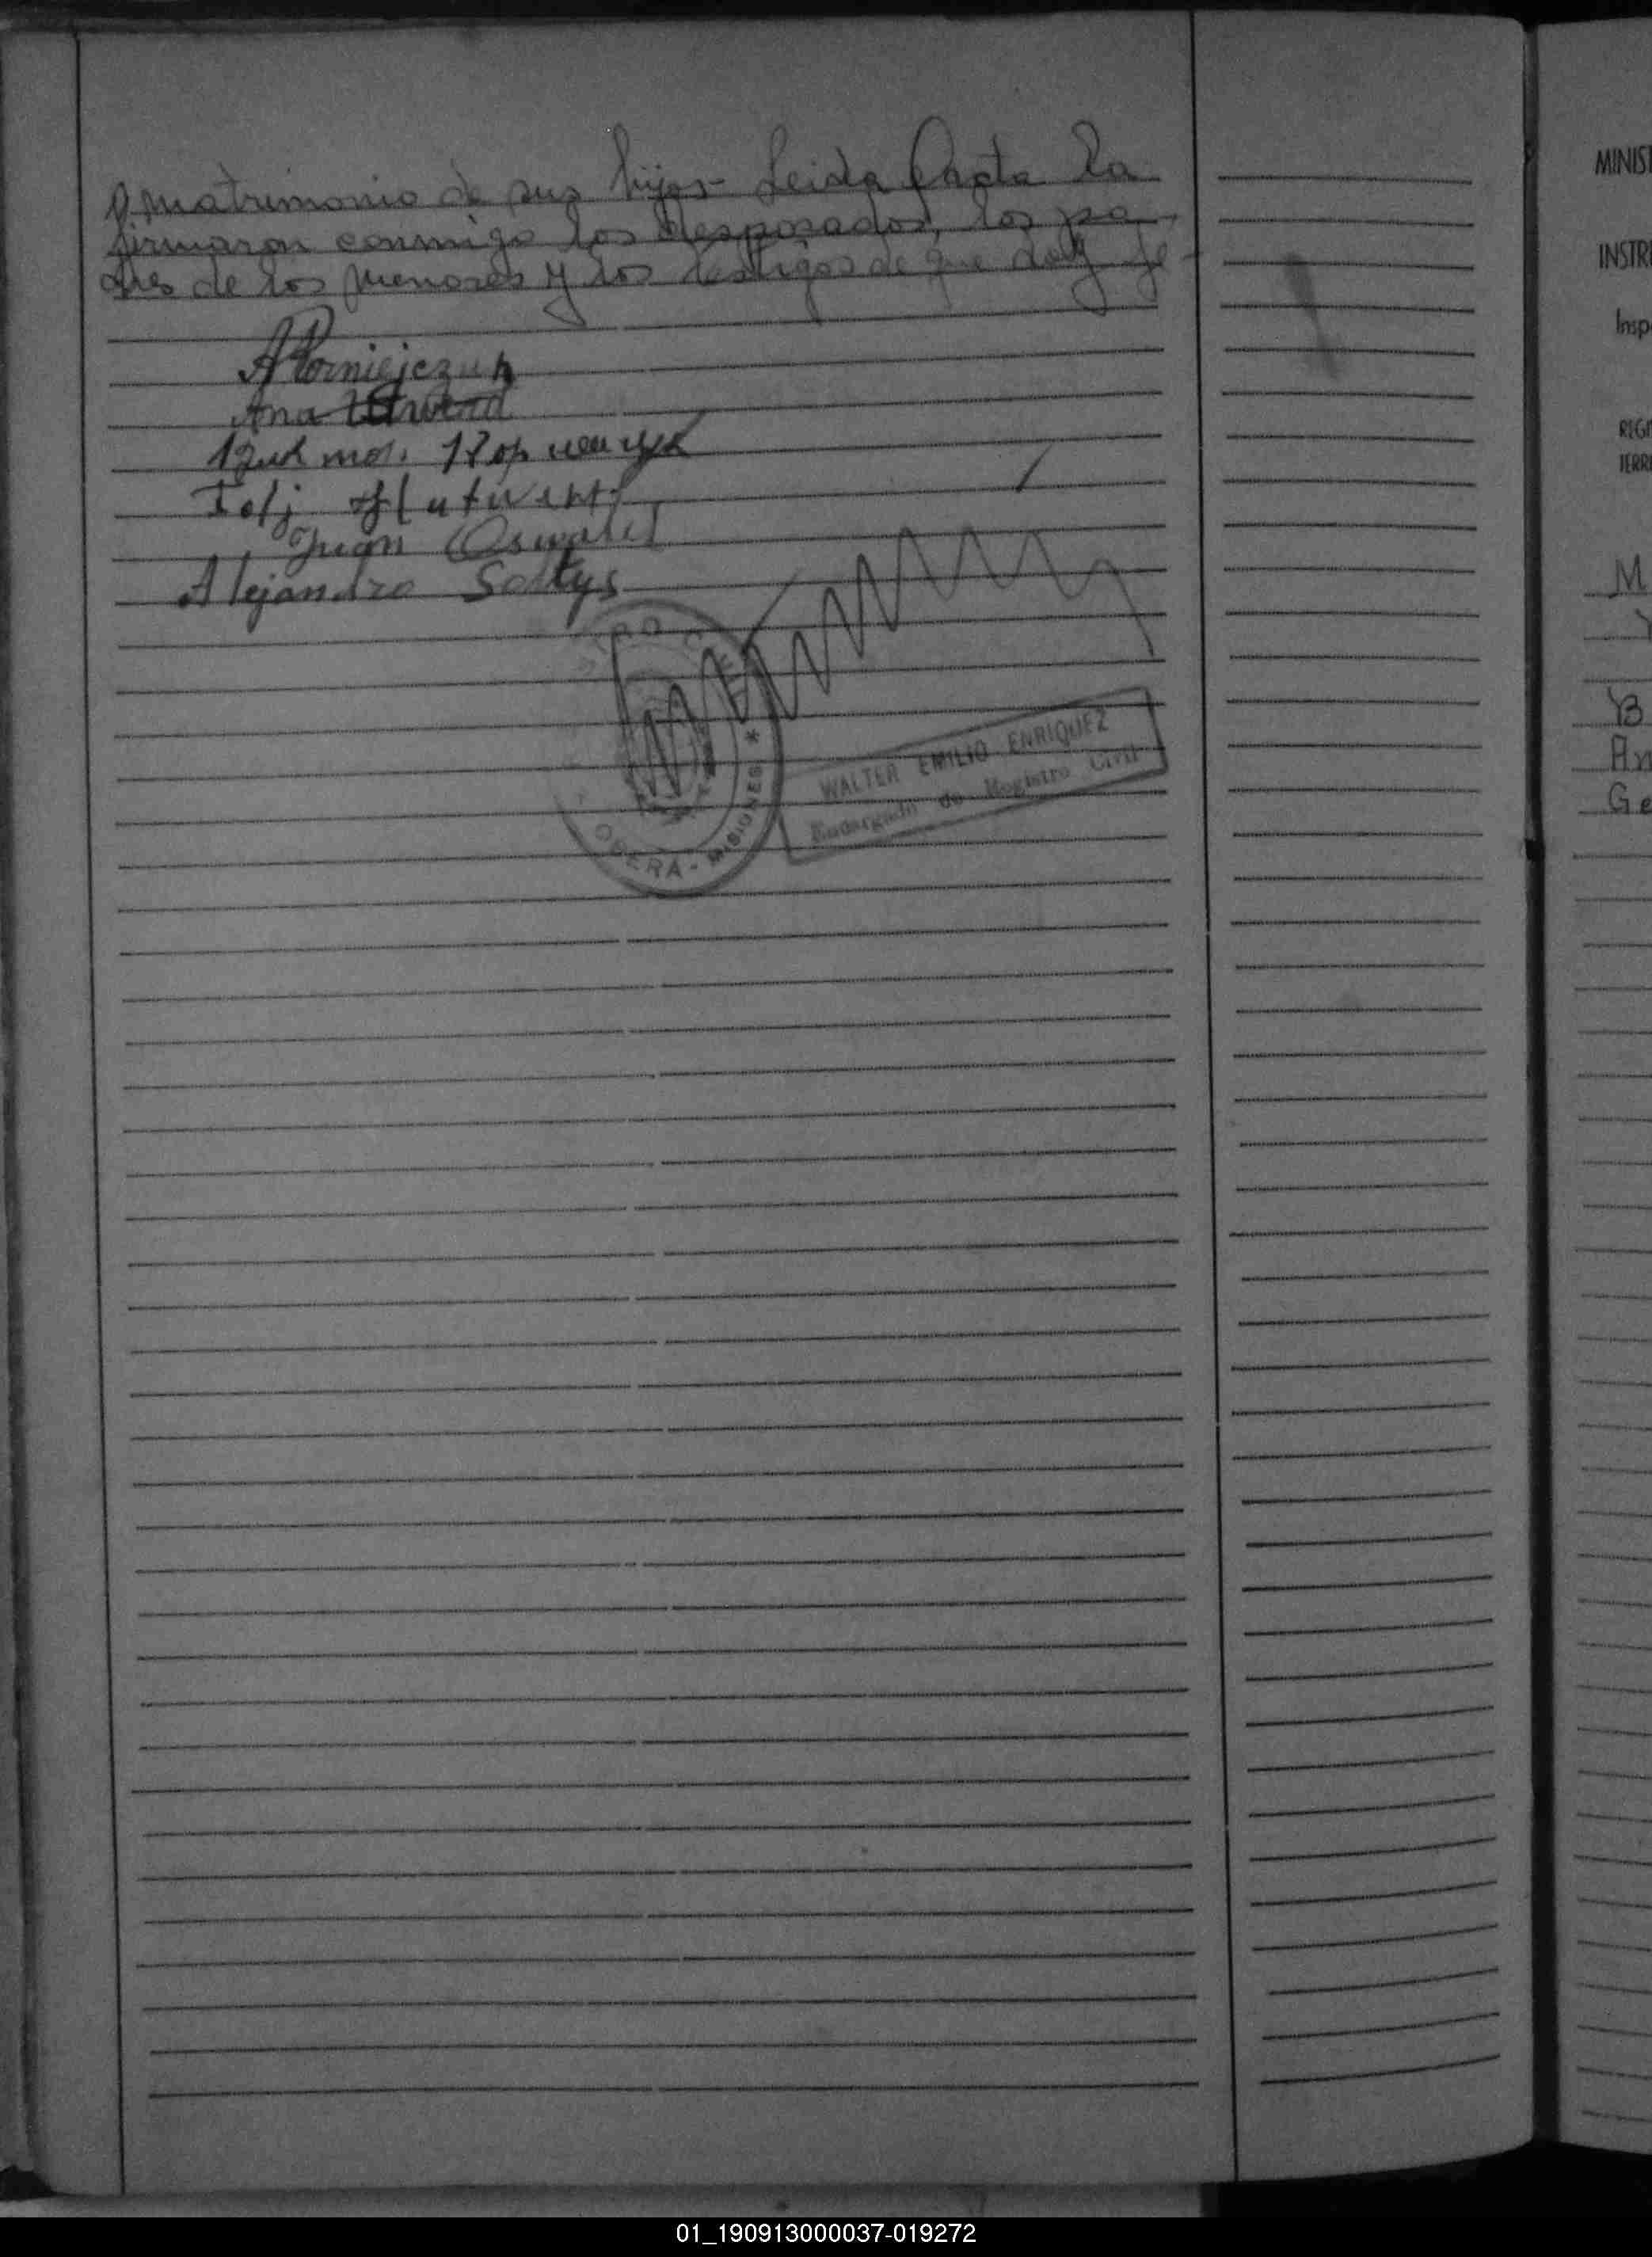 matrimonio de sus hijos - Leida Acta la
firmaron conmigo los desposados, los pa-
dres de los menores y los testigos de que doy fe-
Korniejczuk
Ana
Juan Oswald
Alejandro Soltys
WALTER EMILIO ENRIQUEZ
Encargado de Registro Civil
OBERA - MISIONES *
MINIST
INSTRU
Insp
REGI
TERRI
M
B
An
Ge
01_190913000037-019272